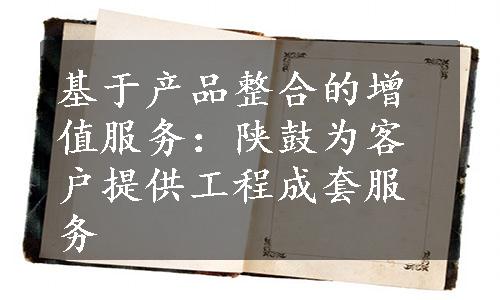 基于产品整合的增
值服务：陕鼓为客
户提供工程成套服
务